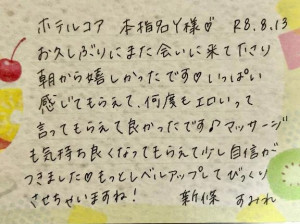 ホテルコア 本指名Y様♡ R8.8.13
お久しぶりにまた会いに来て下さり
朝から嬉しかったです♡ いっぱい
感じてもらえて、何度もエロいって
言ってもらえて良かったです♪マッサージ
も気持ち良くなってもらえて少し自信が
つきました♡もっとレベルアップしてびっくり
させちゃいますね! 新條 すみれ